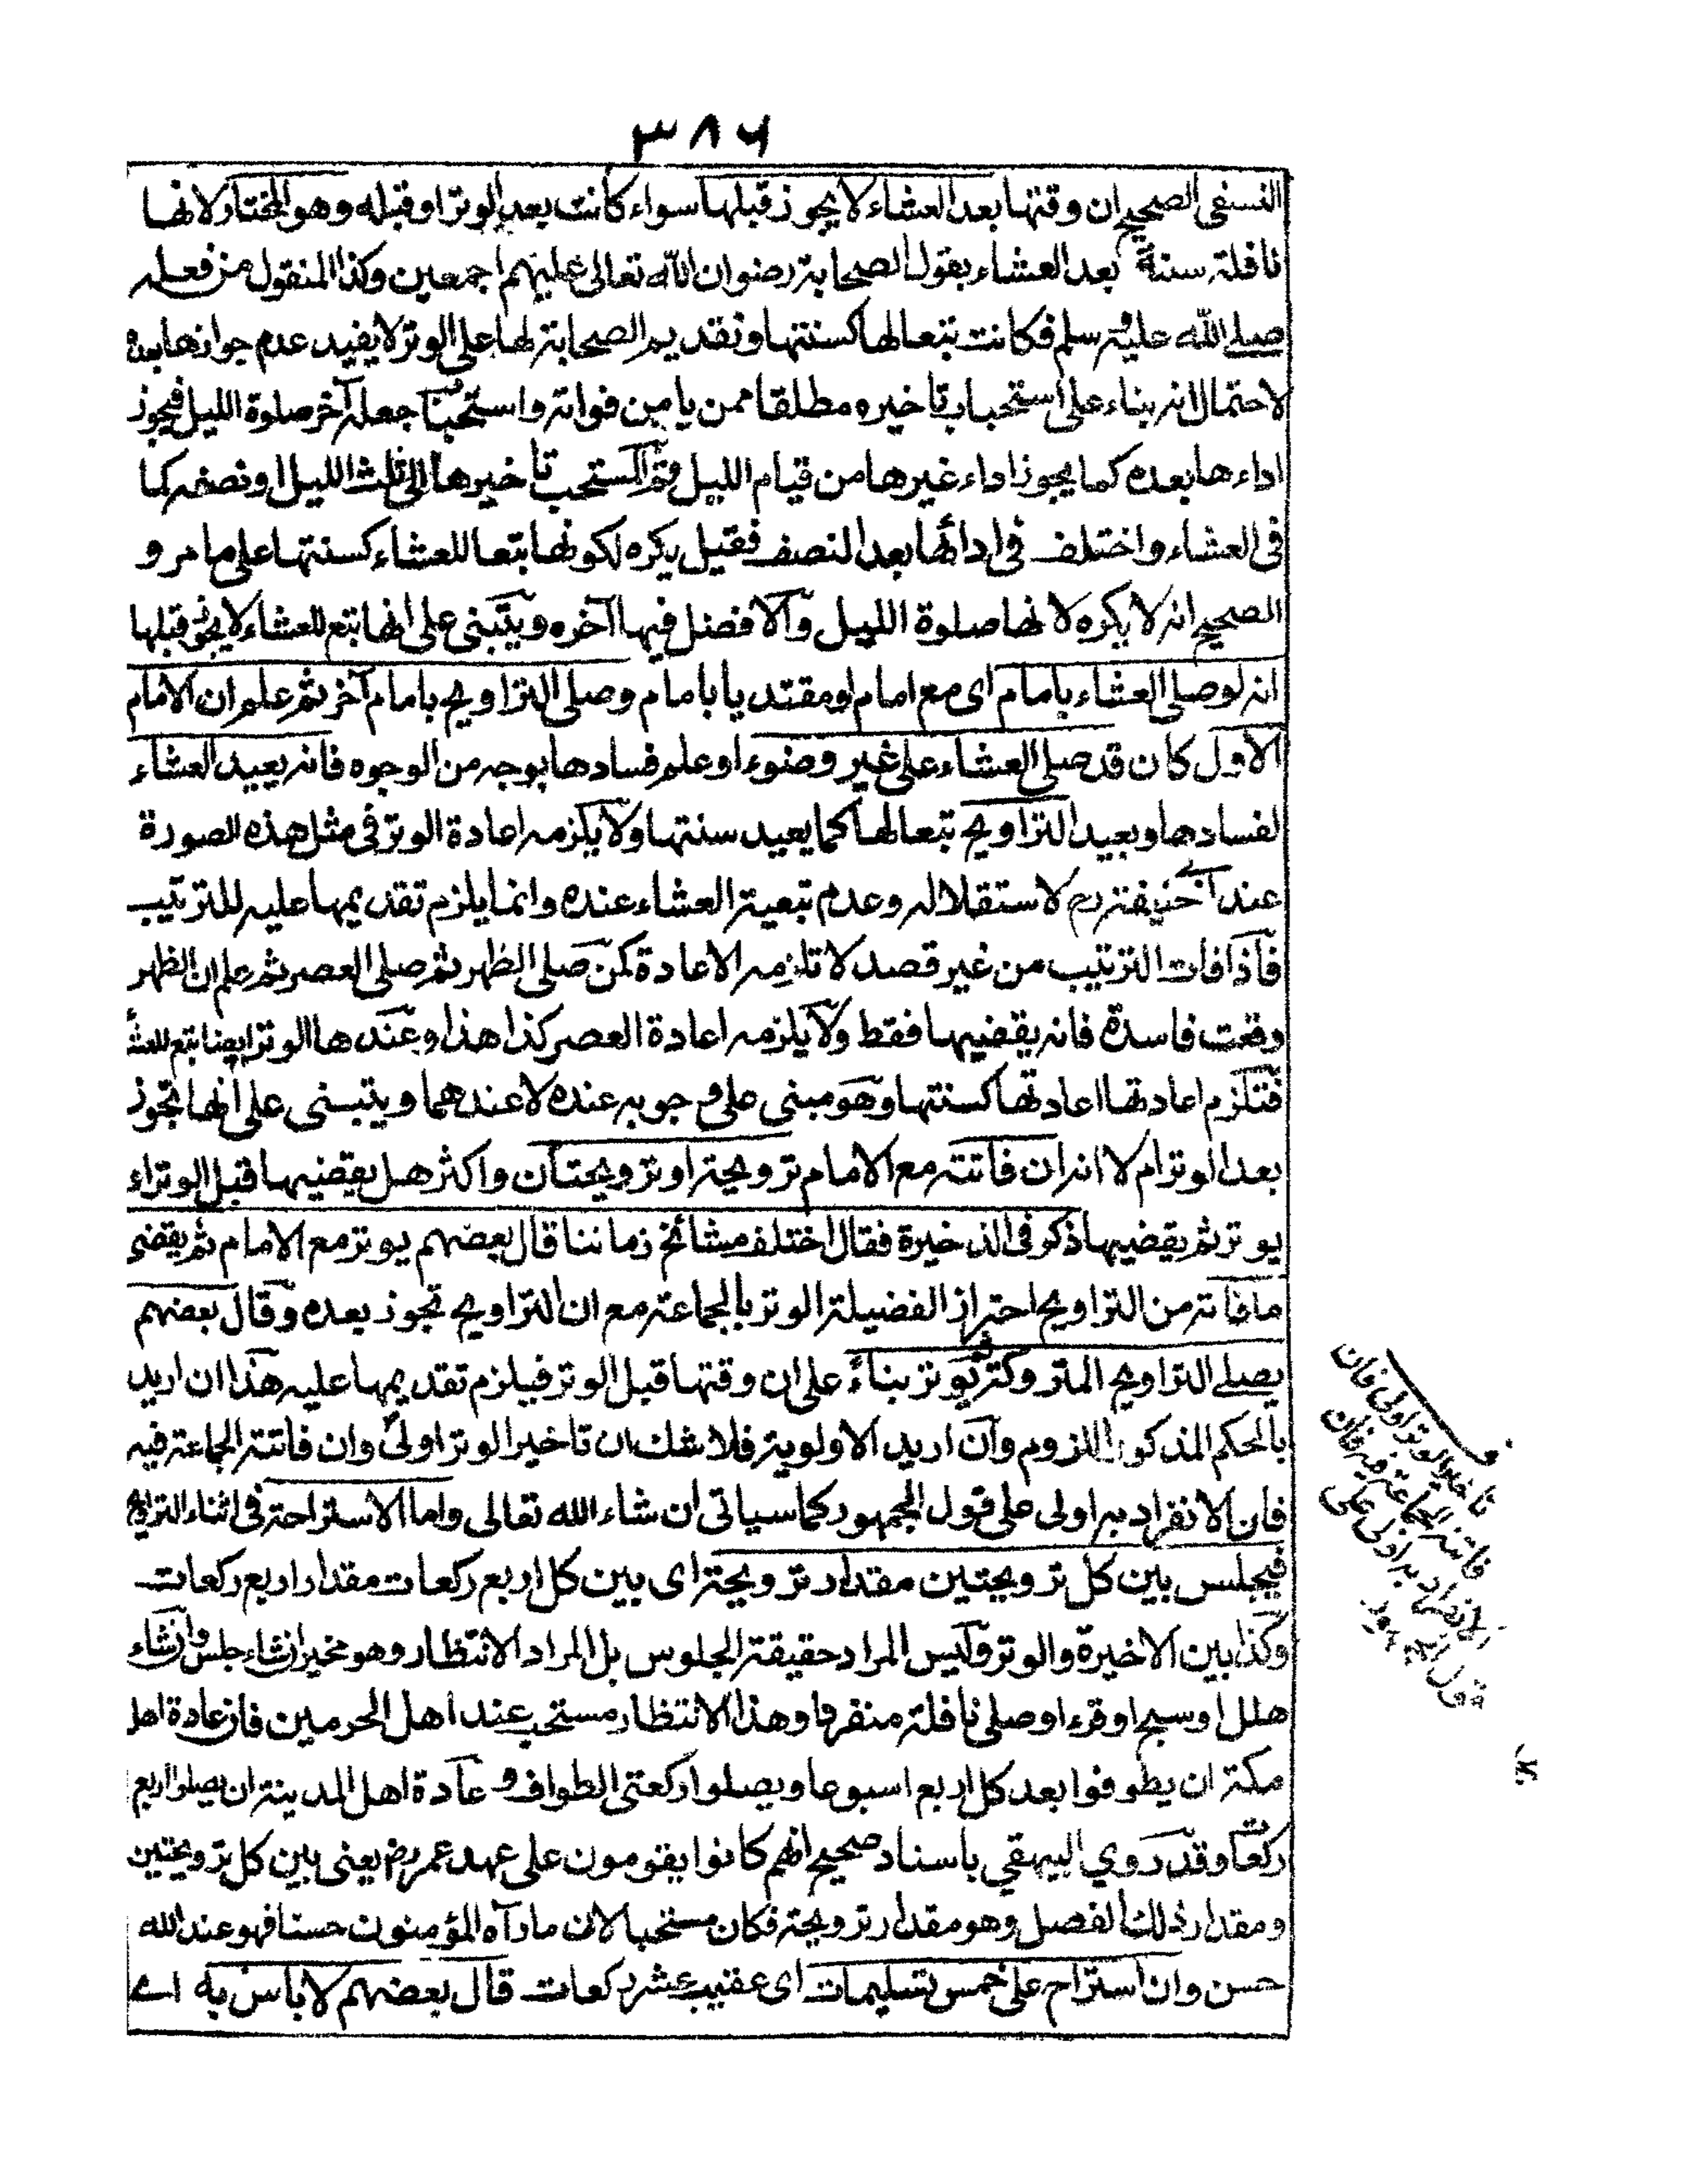 ٣٨٦
النسفى الصحيح ان وقتها بعد العشاء لا يجوز قبلها سواء كانت بعد الوتر او قبله وهو المختار لانها
نافلة سنة بعد العشاء بقول الصحابة رضوان الله تعالى عليهم اجمعين وكذا المنقول من فعله
صلے الله عليه وسلم فكانت تبعا لها كسنتها وتقديم الصحابة لها على الوتر لا يفيد عدم جوازها بعده
لاحتمال انه بناء على استحباب تاخيره مطلقا ممن يامن فواته واستحباب جعله آخر صلوة الليل فيجوز
اداءها بعده كما يجوز اداء غيرها من قيام الليل ثم المستحب تاخيرها الى ثلث الليل او نصفه كما
فى العشاء واختلف فى ادائها بعد النصف فقيل يكره لكونها تبعا للعشاء كسنتها على ما مر و
الصحيح انه لا يكره لانها صلوة الليل والافضل فيها آخره ويتبنى على انها تبع للعشاء لا يجوز قبلها
انه لو صلى العشاء بامام اى مع امام او مقتديا بامام وصلى التراويح بامام آخر ثم علم ان الامام
الاول كان قد صلى العشاء على غير وضوء او علم فسادها بوجه من الوجوه فانه يعيد العشاء
لفسادها ويعيد التراويح تبعا لها كما يعيد سنتها ولا يلزمه اعادة الوتر فى مثل هذه الصورة
عند ابى حنيفة رح لاستقلاله وعدم تبعية العشاء عنده وانما يلزم تقديمها عليه للترتيب
فاذا فات الترتيب من غير قصد لا تلزمه الاعادة كمن صلى الظهر ثم صلى العصر ثم علم ان الظهر
وقعت فاسدة فانه يقضيها فقط ولا يلزمه اعادة العصر كذا هذا وعندها الوتر ايضا تبع للعشا
فتلزم اعادتها اعادتها كسنتها وهو مبنى على وجوبه عنده لا عندهما ويتبنى على انها تجوز
بعد الوتر ام لا انه ان فاتته مع الامام ترويحة او ترويحتان واكثر هل يقضيها قبل الوتر اء
يوتر ثم يقضيها ذكر فى الذخيرة فقال اختلف مشائخ زماننا قال بعضهم يوتر مع الامام ثم يقضى
ما فاته من التراويح احترازا لفضيلة الوتر بالجماعة مع ان التراويح تجوز بعده وقال بعضهم
يصلے التراويح المتروكة ثم يوتر بناءً على ان وقتها قبل الوتر فيلزم تقديمها عليه هذا ان اريد
بالحكم المذكور اللزوم وان اريد الاولوية فلا شك ان تاخير الوتر اولى وان فاتته الجماعة فيه
فان الانفراد به اولى على قول الجمهور كما سياتى ان شاء الله تعالى واما الاستراحة فى اثناء التراويح
فيجلس بين كل ترويحتين مقدار ترويحة اى بين كل اربع ركعات مقدار اربع ركعات
وكذا بين الاخيرة والوتر وليس المراد حقيقة الجلوس بل المراد الانتظار وهو مخير ان شاء جلس وان شاء
هلل او سبح او قرء او صلى نافلة منفردا وهذا الانتظار مستحب عند اهل الحرمين فان عادة اهل
مكة ان يطوفوا بعد كل اربع اسبوعا ويصلوا ركعتى الطواف وعادة اهل المدينة ان يصلوا اربع
ركعات وقد روي البيهقي باسناد صحيح انهم كانوا يقومون على عهد عمر رض يعنى بين كل ترويحتين
ومقدار ذلك الفصل وهو مقدار ترويحة فكان مستحبا لان ما رآه المؤمنون حسنا فهو عند الله
حسن وان استراح على خمس تسليمات اى عقيب عشر ركعات قال بعضهم لا باس به اے
تاخير الوتر اولى فان
فاتته الجماعة فيه فان
الانفراد به اولى على
قول الجمهور